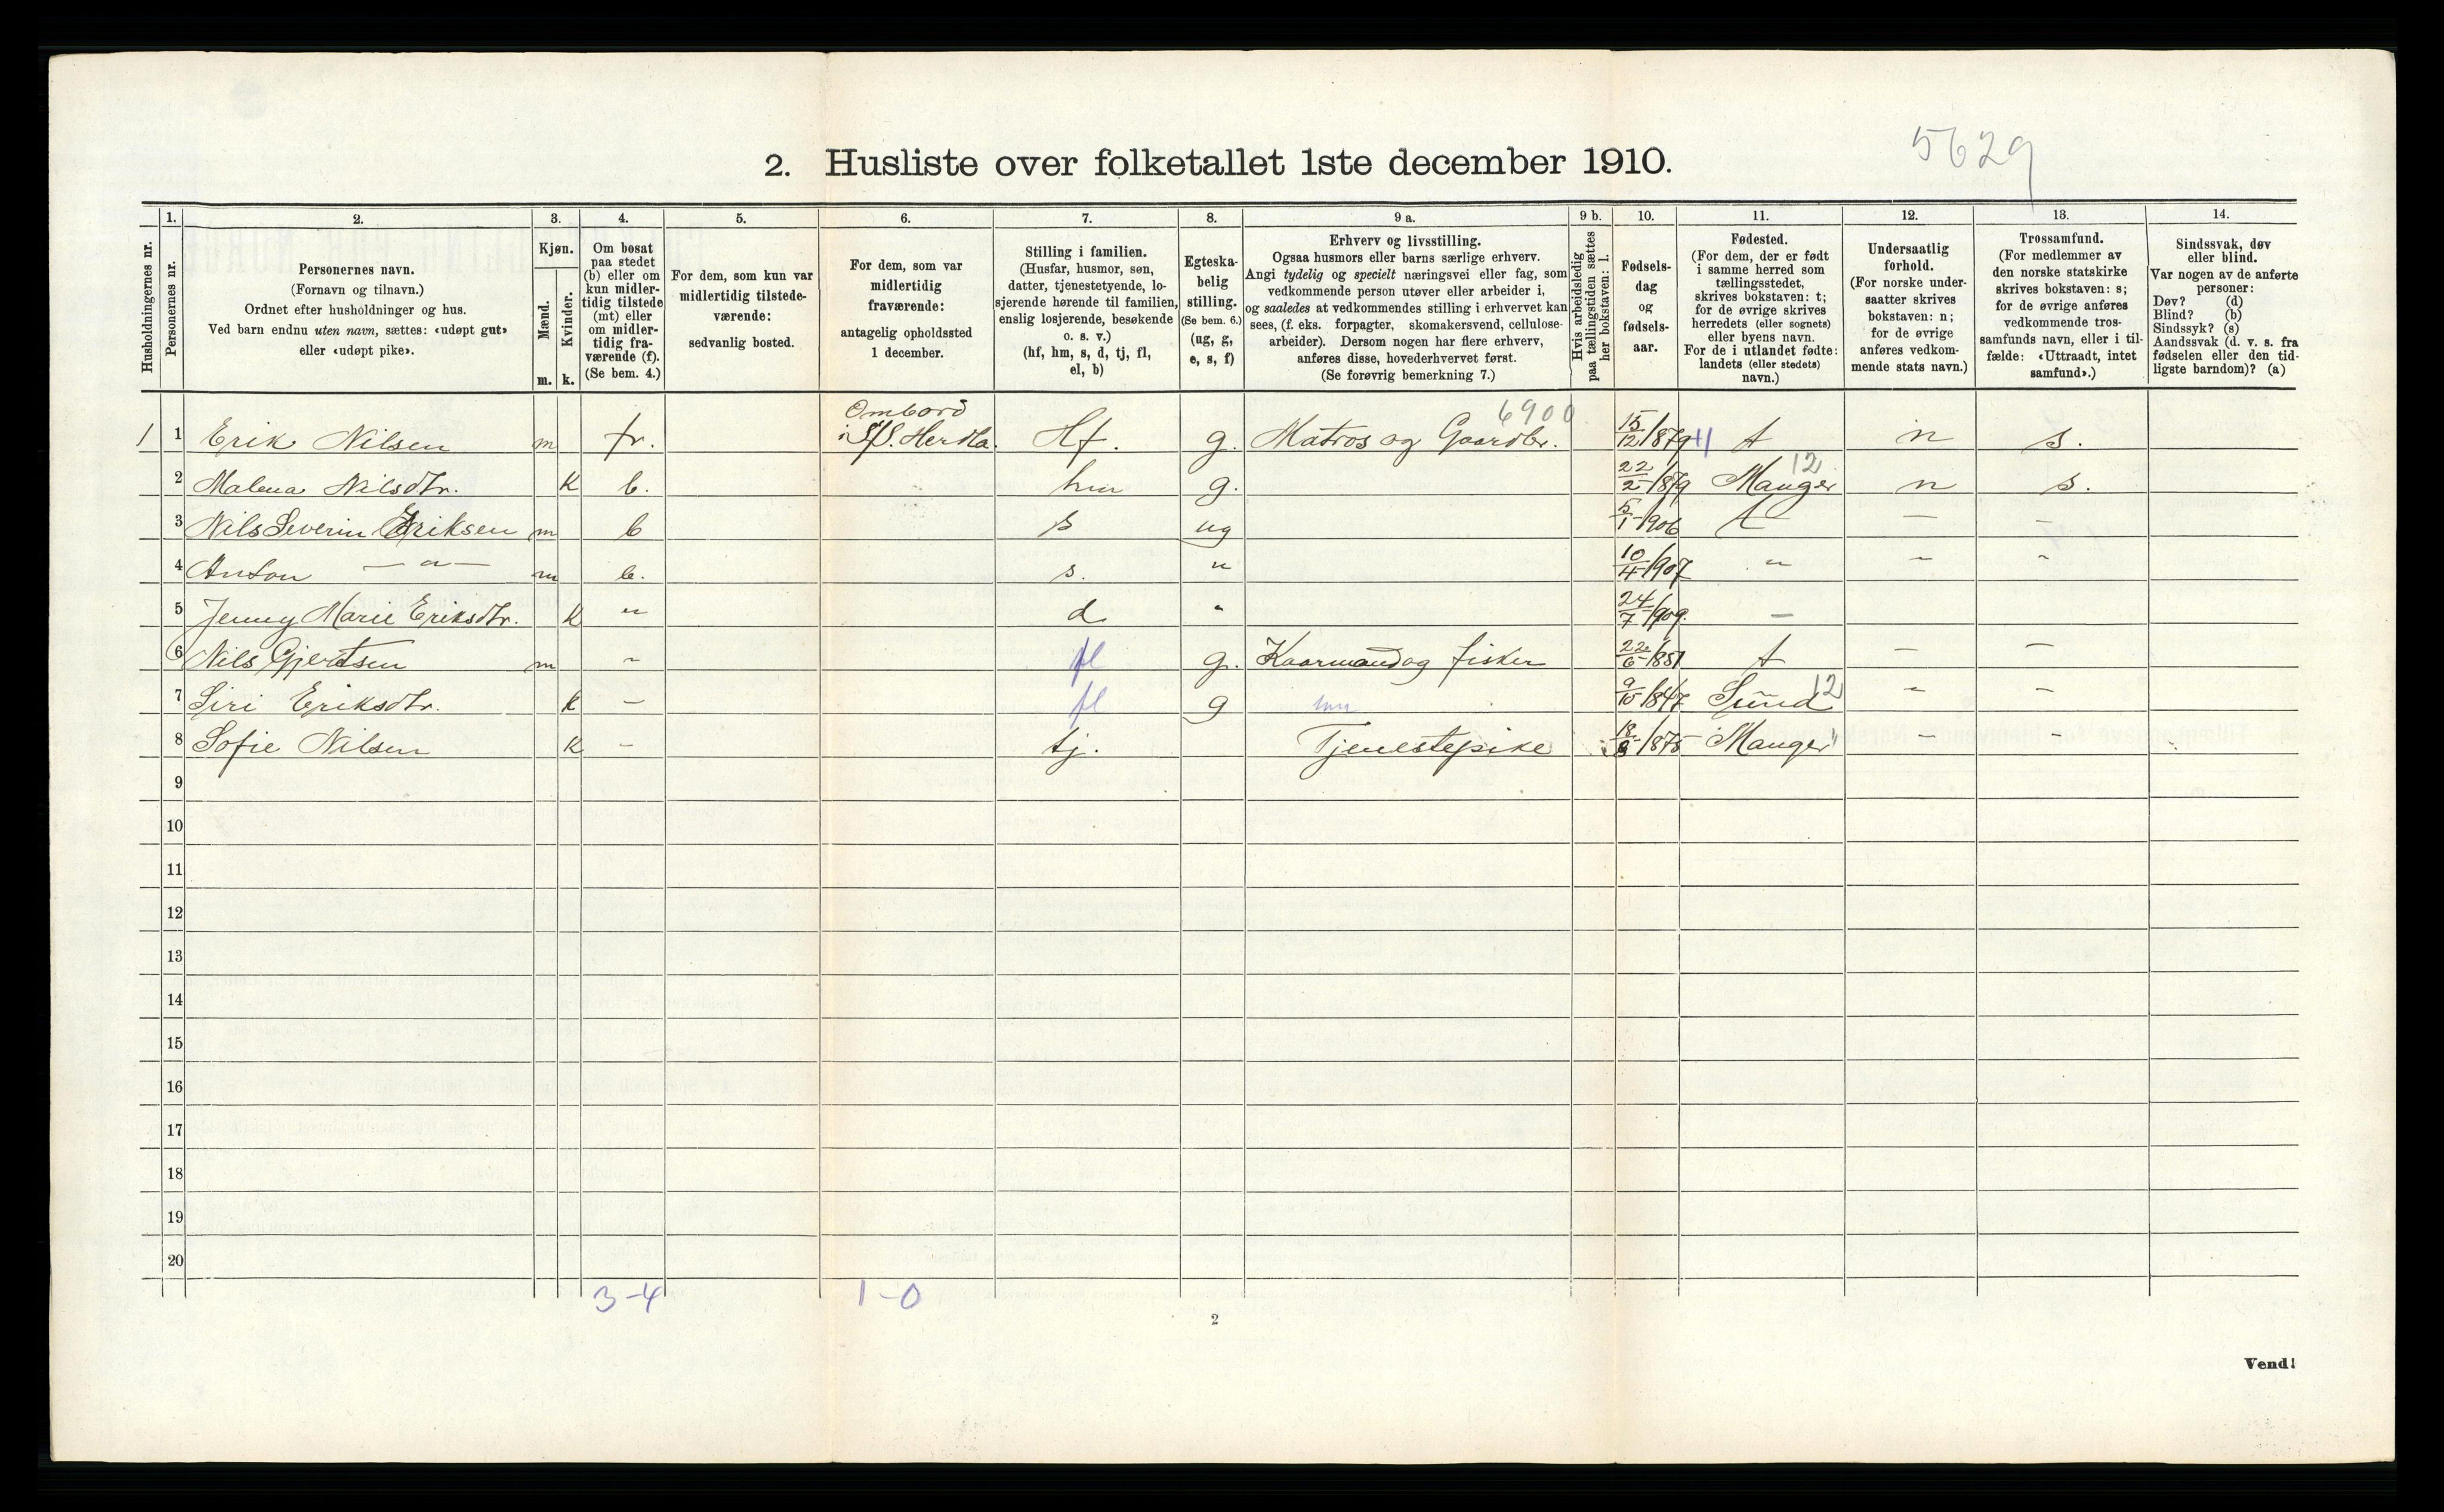 5629
2. Husliste over folketallet 1ste december 1910.
Husholdningernes nr.
1.
Personernes nr.
2.
Personernes navn.
(Fornavn og tilnavn.)
Ordnet efter husholdninger og hus.
Ved barn endnu uten navn, sættes: «udøpt gut»
eller «udøpt pike».
3.
Kjøn.
Mænd.
m.
Kvinder.
k.
4.
Om bosat
paa stedet
(b) eller om
kun midler-
tidig tilstede
(mt) eller
om midler-
tidig fra-
værende (f).
(Se bem. 4.)
5.
For dem, som kun var
midlertidig tilstede-
værende:
sedvanlig bosted.
6.
For dem, som var
midlertidig
fraværende:
antagelig opholdssted
1 december.
7.
Stilling i familien.
(Husfar, husmor, søn,
datter, tjenestetyende, lo-
sjerende hørende til familien,
enslig losjerende, besøkende
o. s. v.)
(hf, hm, s, d, tj, fl,
el, b)
8.
Egteska-
belig
stilling.
(Se bem. 6.)
(ug, g,
e, s, f)
9 a.
Erhverv og livsstilling.
Ogsaa husmors eller barns særlige erhverv.
Angi tydelig og specielt næringsvei eller fag, som
vedkommende person utøver eller arbeider i,
og saaledes at vedkommendes stilling i erhvervet kan
sees, (f. eks. forpagter, skomakersvend, cellulose-
arbeider). Dersom nogen har flere erhverv,
anføres disse, hovederhvervet først.
(Se forøvrig bemerkning 7.)
9 b.
Hvis arbeidsledig
paa tællingstiden sættes
her bokstaven: l.
10.
Fødsels-
dag
og
fødsels-
aar.
11.
Fødested.
(For dem, der er født
i samme herred som
tællingsstedet,
skrives bokstaven: t;
for de øvrige skrives
herredets (eller sognets)
eller byens navn.
For de i utlandet fødte:
landets (eller stedets)
navn.)
12.
Undersaatlig
forhold.
(For norske under-
saatter skrives
bokstaven: n;
for de øvrige
anføres vedkom-
mende stats navn.)
13.
Trossamfund.
(For medlemmer av
den norske statskirke
skrives bokstaven: s;
for de øvrige anføres
vedkommende tros-
samfunds navn, eller i til-
fælde: «Uttraadt, intet
samfund».)
14.
Sindssvak, døv
eller blind.
Var nogen av de anførte
personer:
Døv? (d)
Blind? (b)
Sindssyk? (s)
Aandssvak (d. v. s. fra
fødselen eller den tid-
ligste barndom)? (a)
1 1 Erik Nilsen m fr. Ombord i S/S. Herdla. Hf. g. Matros og Gaardbr. 6900 15/12/1879 t n s.
2 Malena Nilsdtr. K b. hm g. 22/2-1879 Manger 12 n s.
3 Nils Severin Eriksen m b s ug 5/1-1906 t — —
4 Anton — " — m b. s. " 10/4-1907 " — "
5 Jenny Marie Eriksdtr. K " d " 24/7-1909. —
6 Nils Gjertsen m " fl g. Kaarmand og fisker 22/6-1851 t — —
7 Siri Eriksdtr. k — fl g hm 9/10-1847 Sund 12 — —
8 Sofie Nilsen K — tj. Tjenestepike 18/8-1875 Manger — —
9
10
11
12
13
14
15
16
17
18
19
20
3-4 1-0
2
Vend!